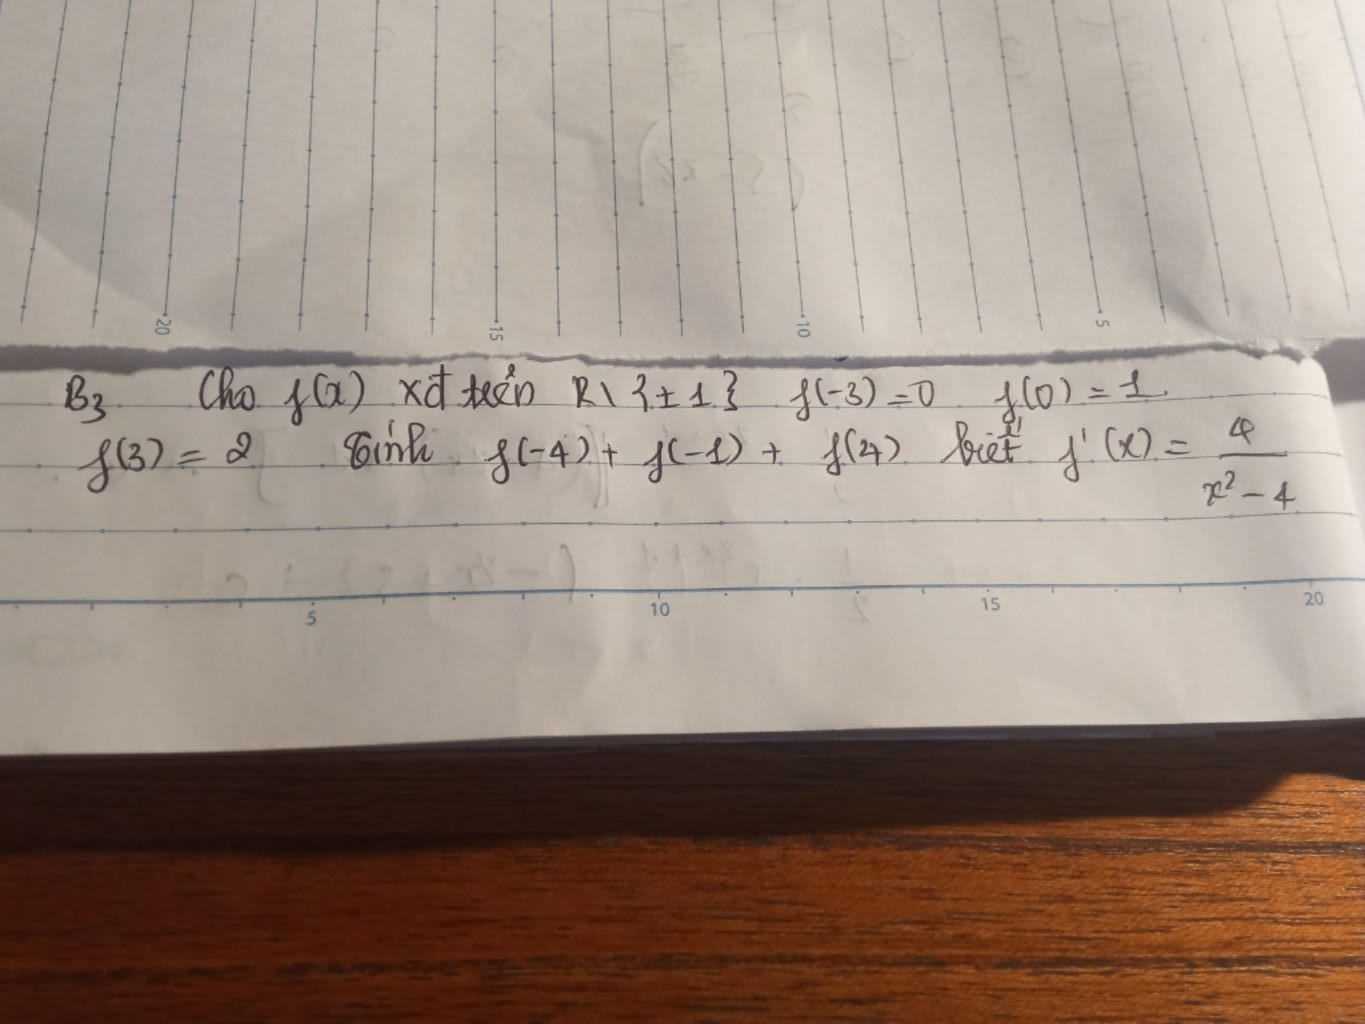 20 15 10 5
B3 Cho f(x) xđ trên R\{±1} f(-3)=0 f(0)=1.
f(3)=2 Tính f(-4)+f(-1)+f(4) biết f'(x)=4/(x²-4)
5 10 15 20